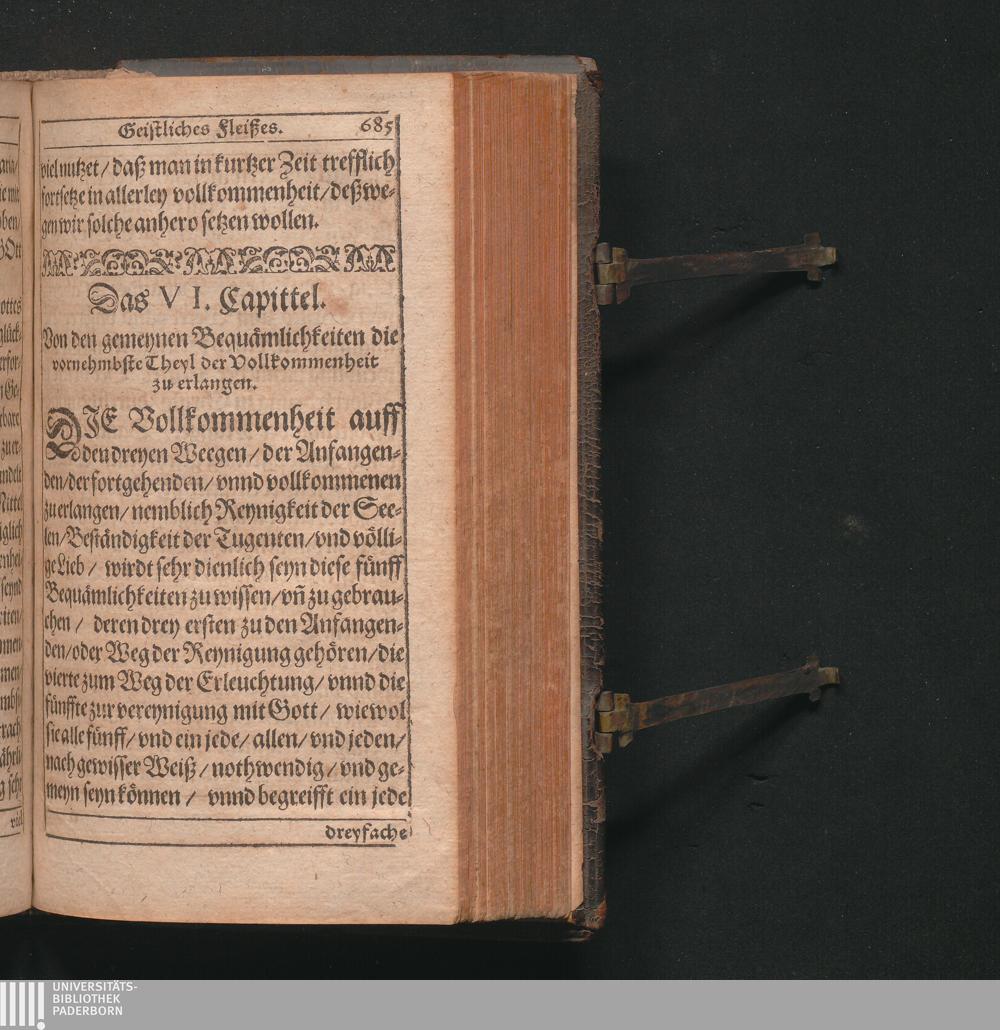 Geistliches Fleißes. 685
viel nutzet / daß man in kurtzer Zeit trefflich
fortsetze in allerley vollkommenheit / deßwe-
gen wir solche anhero setzen wollen.
Das VI. Capittel.
Von den gemeynen Bequämlichkeiten die
vornehmbste Theyl der Vollkommenheit
zu erlangen.
DIE Vollkommenheit auff
den dreyen Weegen / der Anfangen-
den / der fortgehenden / vnnd vollkommenen
zu erlangen / nemblich Reynigkeit der See-
len / Beständigkeit der Tugenten / vnd völli-
ge Lieb / wirdt sehr dienlich seyn diese fünff
Bequämlichkeiten zu wissen / vñ zu gebrau-
chen / deren drey ersten zu den Anfangen-
den / oder Weg der Reynigung gehören / die
vierte zum Weg der Erleuchtung / vnnd die
fünffte zur vereynigung mit Gott / wiewol
sie alle fünff / vnd ein jede / allen / vnd jeden /
nach gewisser Weiß / nothwendig / vnd ge-
meyn seyn können / vnnd begreifft ein jede
dreyfache
UNIVERSITÄTS-
BIBLIOTHEK
PADERBORN